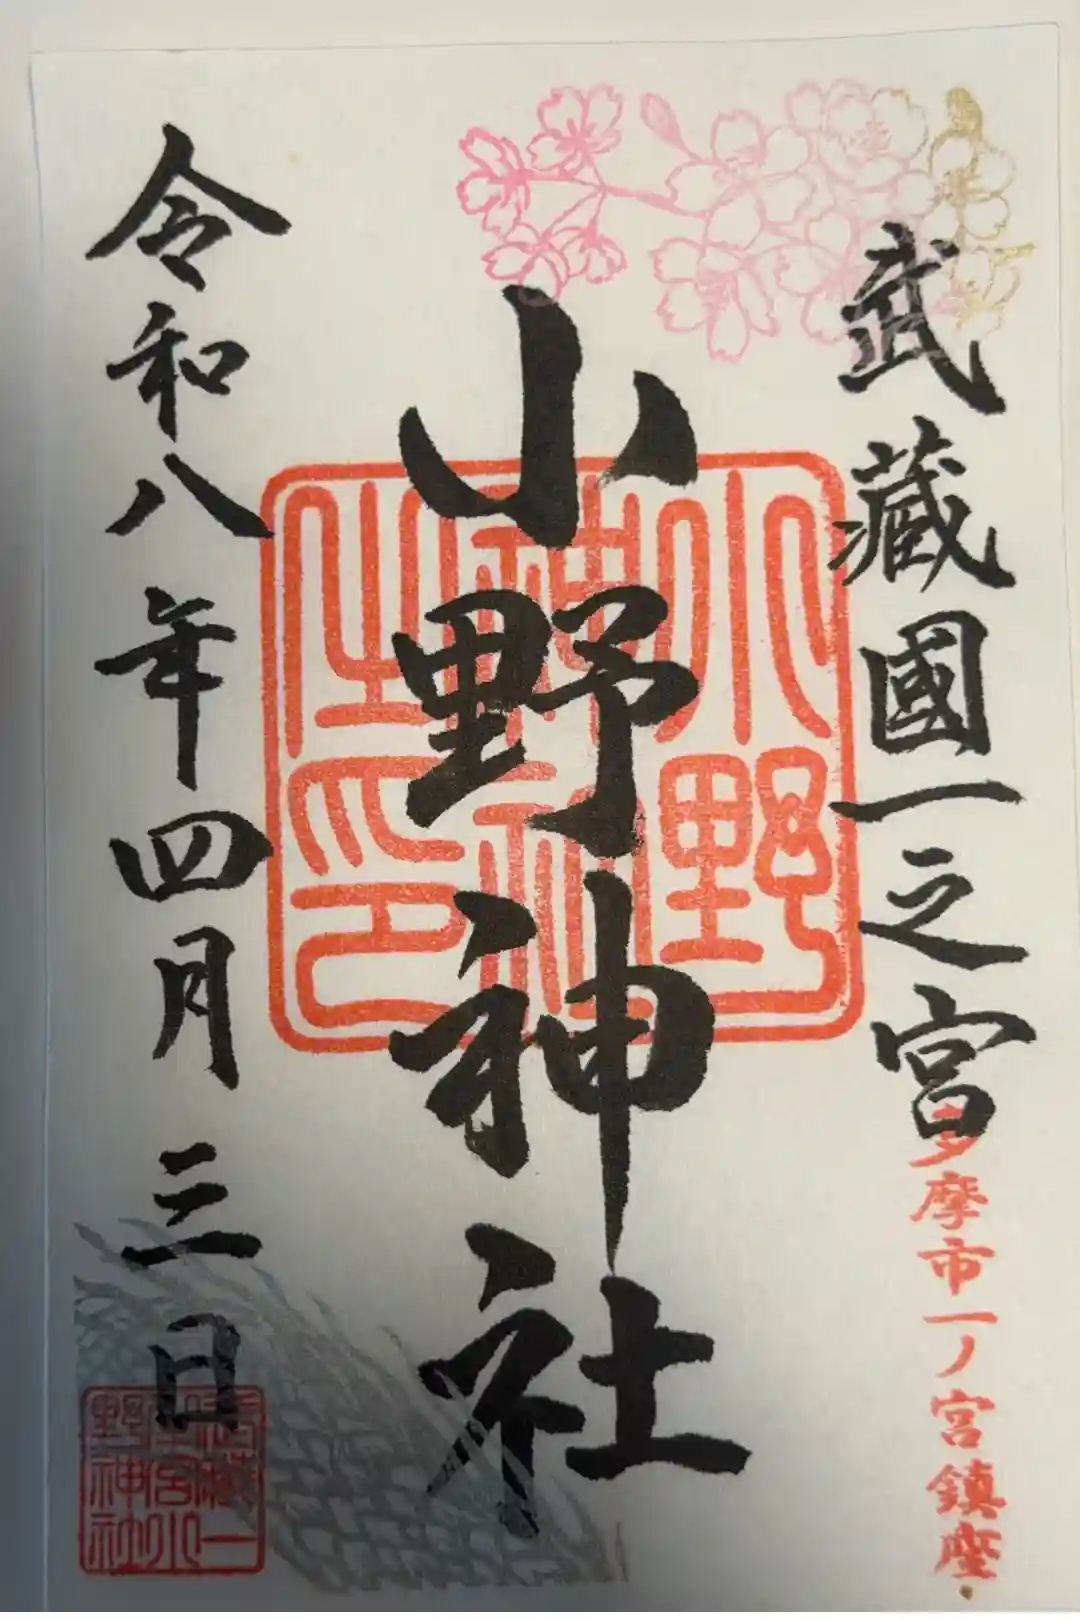 武藏國一之宮
多摩市一ノ宮鎮座
小野神社
小野神社之印
令和八年四月三日
武蔵一之宮小野神社